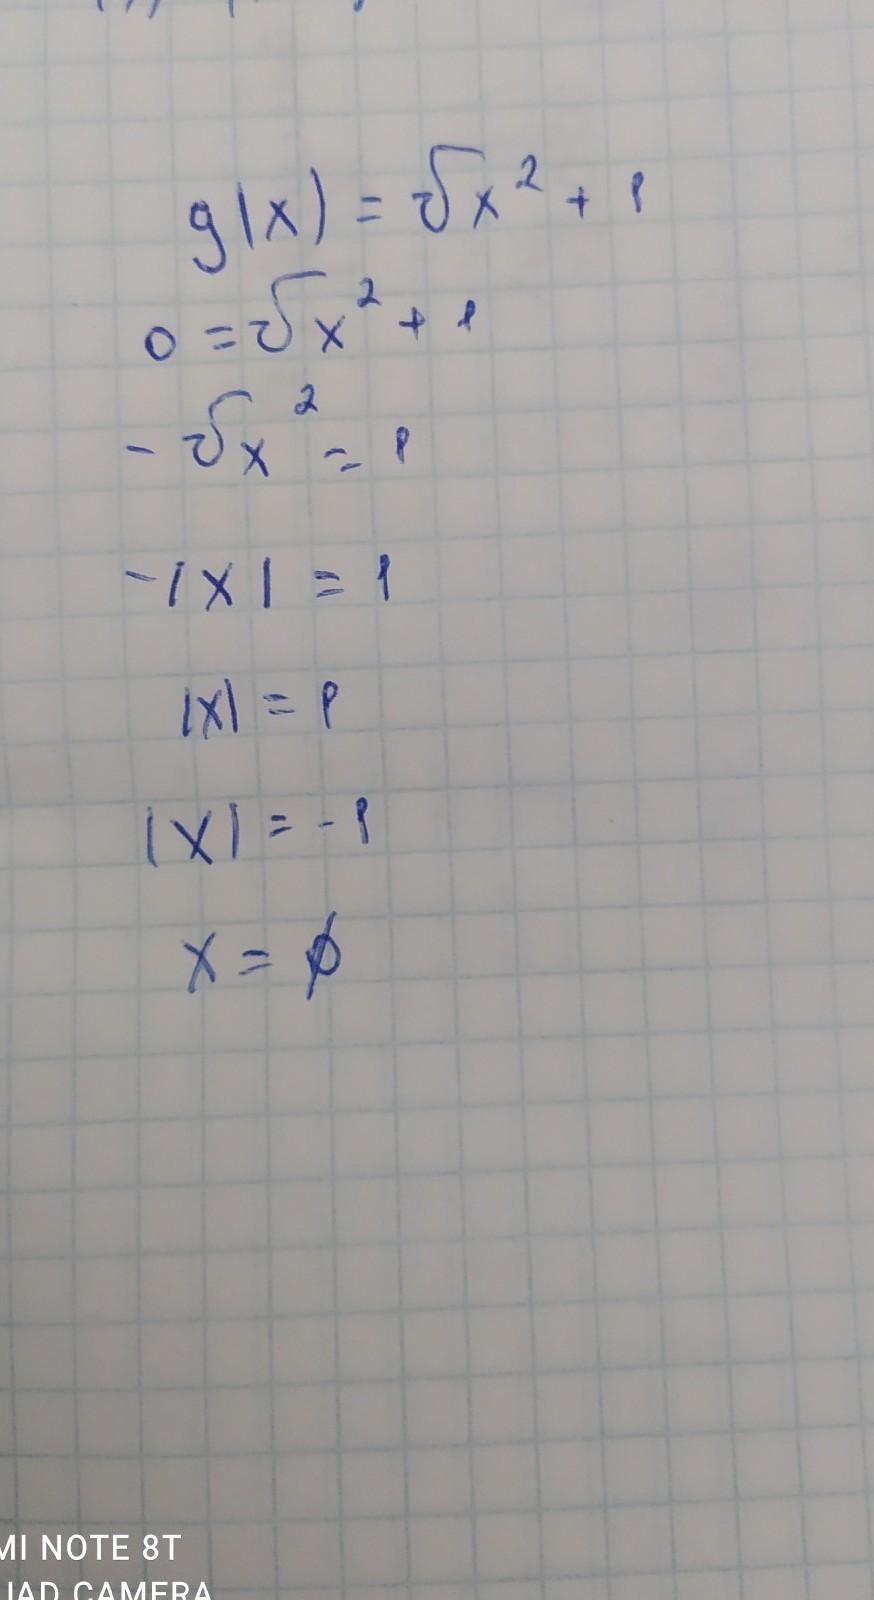 g(x) = √x² + 1
0 = √x² + 1
- √x² = 1
-|x| = 1
|x| = 1
|x| = -1
x = ∅
MI NOTE 8T
UAD CAMERA